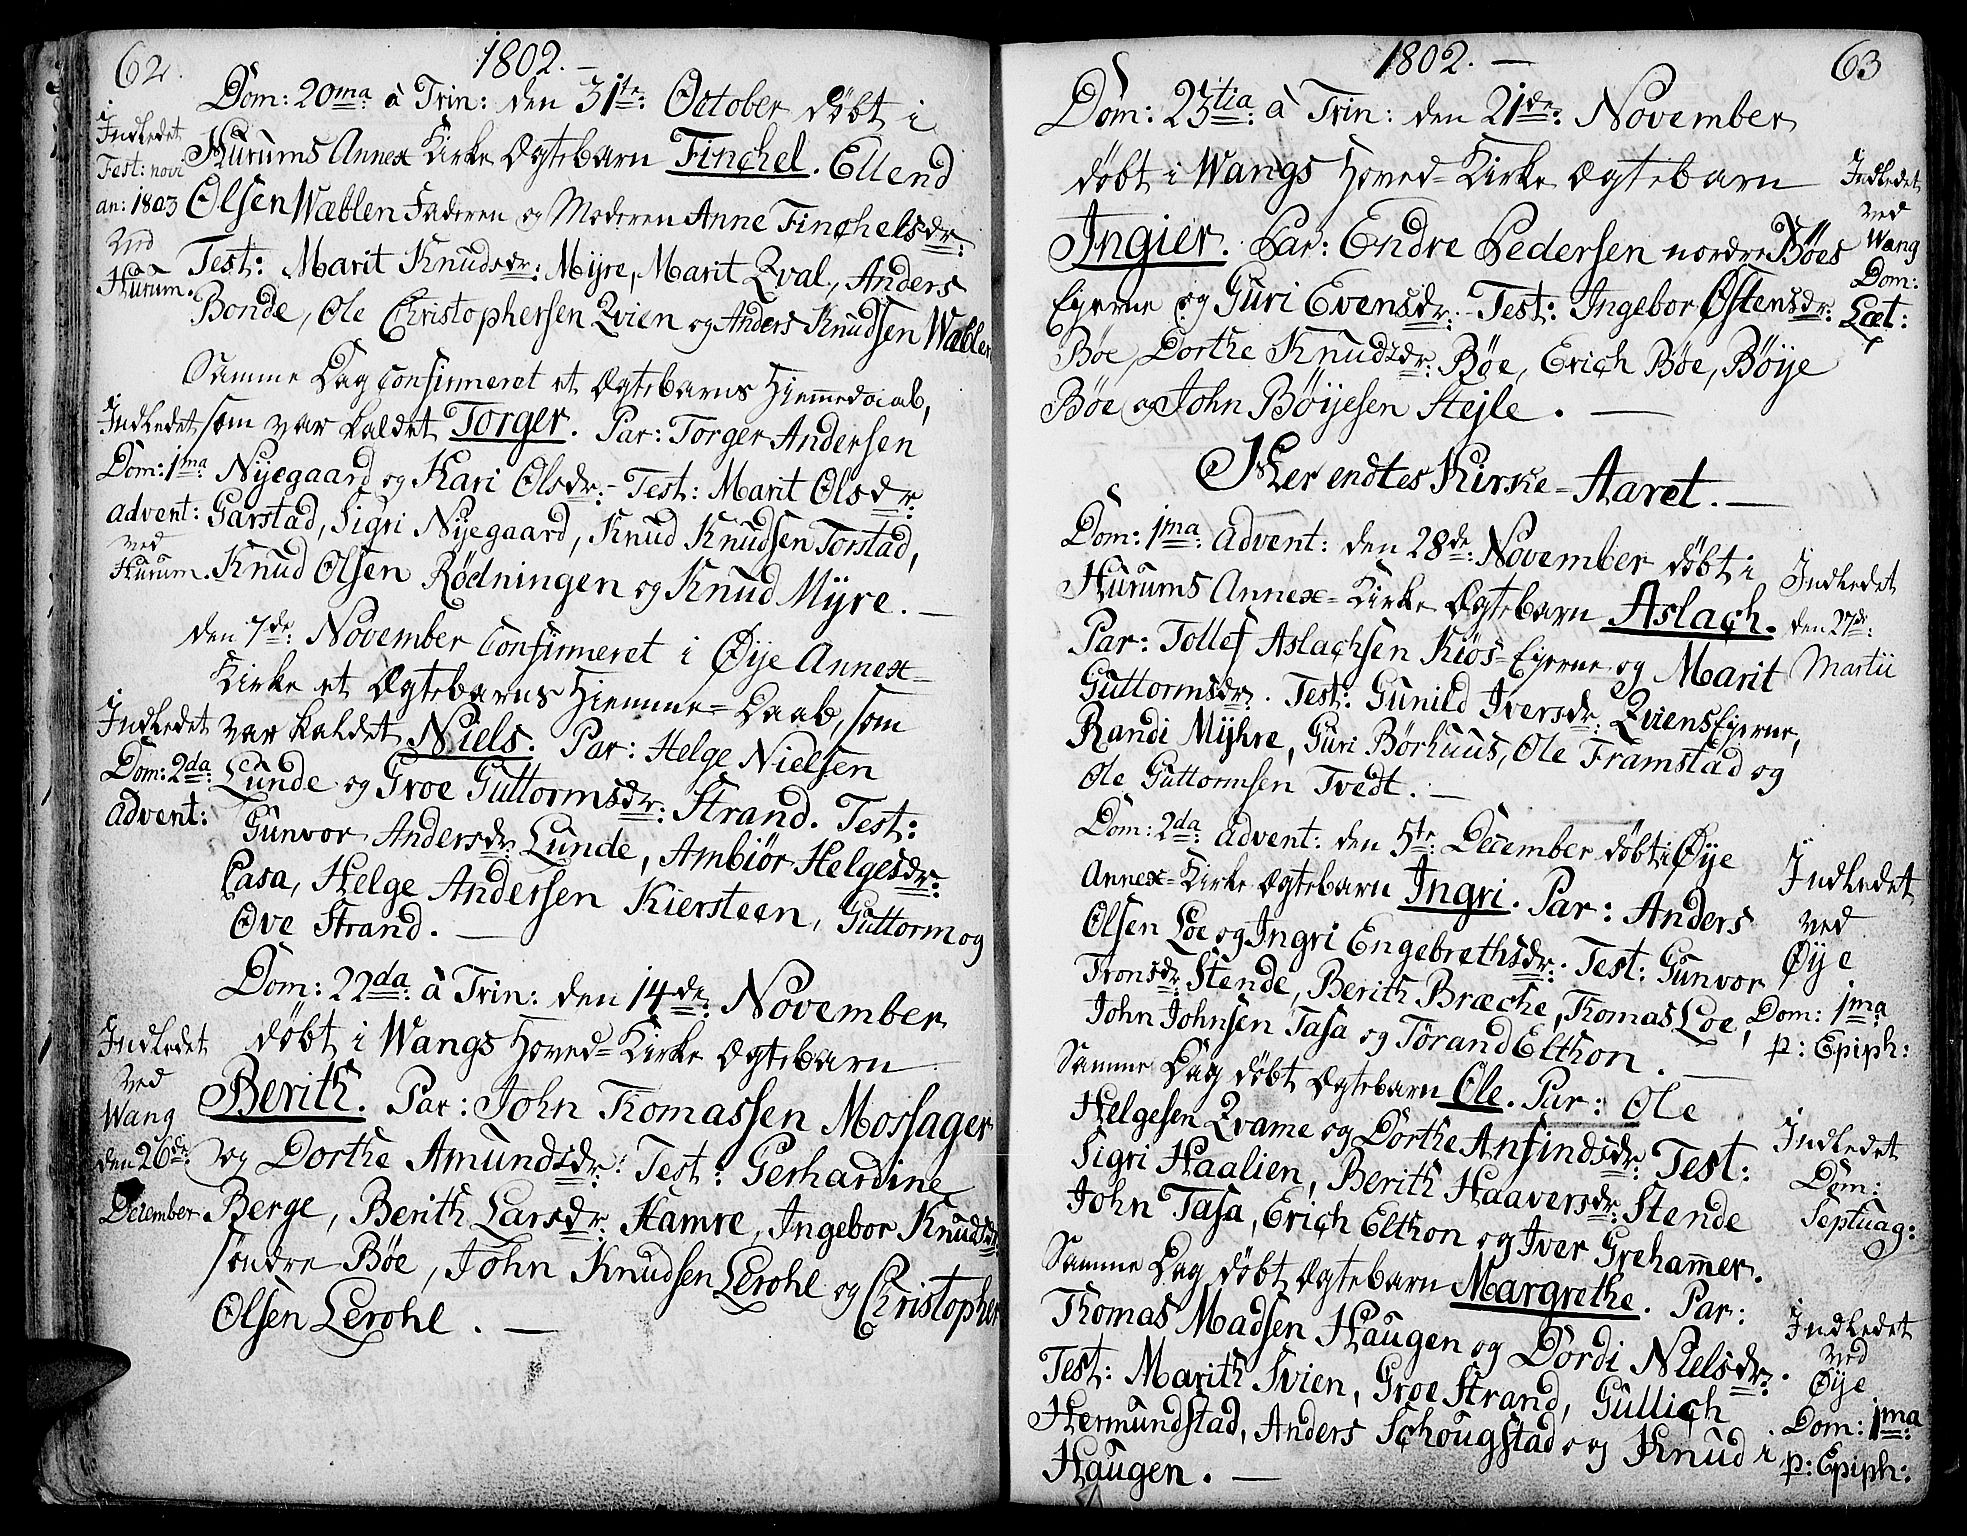 62.
1802. —
Dom: 20ma à Trin: den 31te October døbt i
Hurums Annex Kirke Ægtebarn Finchel. Ellend
Olsen Wæblen Faderen og Moderen Anne Finchelsdr:
Test: Marit Knudsdr: Myre, Marit Qval, Anders
Bonde, Ole Christophersen Qvien og Anders Knudsen Wæblen
Indledet
Fest: novi
an: 1803
ved
Hurum.
Samme Dag confirmeret et Ægtebarns Hjemmedaab,
som var kaldet Torger. Par: Torger Andersen
Nyegaard og Kari Olsdr: - Test: Marit Olsdr:
Garstad, Sigri Nyegaard, Knud Knudsen Torstad,
Knud Olsen Rødningen og Knud Myre. —
Indledet
Dom: 1ma
advent:
ved
Hurum.
den 7de November confirmeret i Øye Annex-
Kirke et Ægtebarns Hiemme-Daab, som
var kaldet Niels. Par: Helge Nielsen
Lunde og Groe Guttormsdr: Strand. Test:
Gunvor Andersdr: Lunde, Ambiør Helgesdr:
Casa, Helge Andersen Kiersteen, Guttorm og
Ove Strand. —
Indledet
Dom: 2da:
advent:
Dom: 22da: à Trin: den 14de November
døbt i Wangs Hoved-Kirke Ægtebarn
Berith. Par: John Thomassen Mossager
og Dorthe Amundsdr: Test: Gerhardine
Berge, Berith Larsdr: Hamre, Ingebor Knudsdr:
søndre Bøe, John Knudsen Lerohl og Christopher
Olsen Lerohl. —
Indledet
ved
Wang
den 26de:
December
1802. —
63
Dom: 23tia: à Trin: den 21de: November
døbt i Wangs Hoved-Kirke Ægtebarn
Ingier. Par: Endre Pedersen nordre Bøes
Ejerne og Guri Evensdr: - Test: Ingebor Østensdr:
Bøe, Dorthe Knudsdr: Bøe, Erich Bøe, Bøye
Bøe og John Bøyesen Stejle. —
Indledet
ved
Wang
Dom:
Læt:
Her endtes Kirke-Aaret. —
Dom: 1ma: Advent: den 28de: November døbt i
Hurums Annex-Kirke Ægtebarn Aslach.
Par: Tollef Aslachsen Kiøs-Ejerne og Marit
Guttormsdr. Test: Gunild Iversdr: Qviens Ejerne,
Randi Myhre, Guri Børhuus, Ole Framstad og
Ole Guttormsen Tvedt. —
Indledet
den 27de:
Martii
Dom: 2da: advent: den 5te: December døbt i Øye
Annex-Kirke Ægtebarn Ingri. Par: Anders
Olsen Loe og Ingri Engebrethsdr: Test: Gunvor
Tronsdr: Stende, Berith Bræche, Thomas Loe,
John Johnsen Tasa og Torand Elthon. —
Indledet
ved
Øye
Dom: 1ma
p: Epiph:
Samme Dag døbt Ægtebarn Ole. Par: Ole
Helgesen Qvame og Dorthe Anfindsdr: Test:
Sigri Haalien, Berith Haaversdr: Stende
John Tasa, Erich Elthon og Iver Grehamer.
Indledet
Dom:
Septuag:
Samme Dag døbt Ægtebarn Margrethe. Par:
Thomas Madsen Haugen og Dordi Nielsdr:
Test: Marith Svien, Groe Strand, Gullich
Hermundstad, Anders Schougstad og Knud i
Haugen. —
Indledet
ved
Øye
Dom: 1ma
p: Epiph: